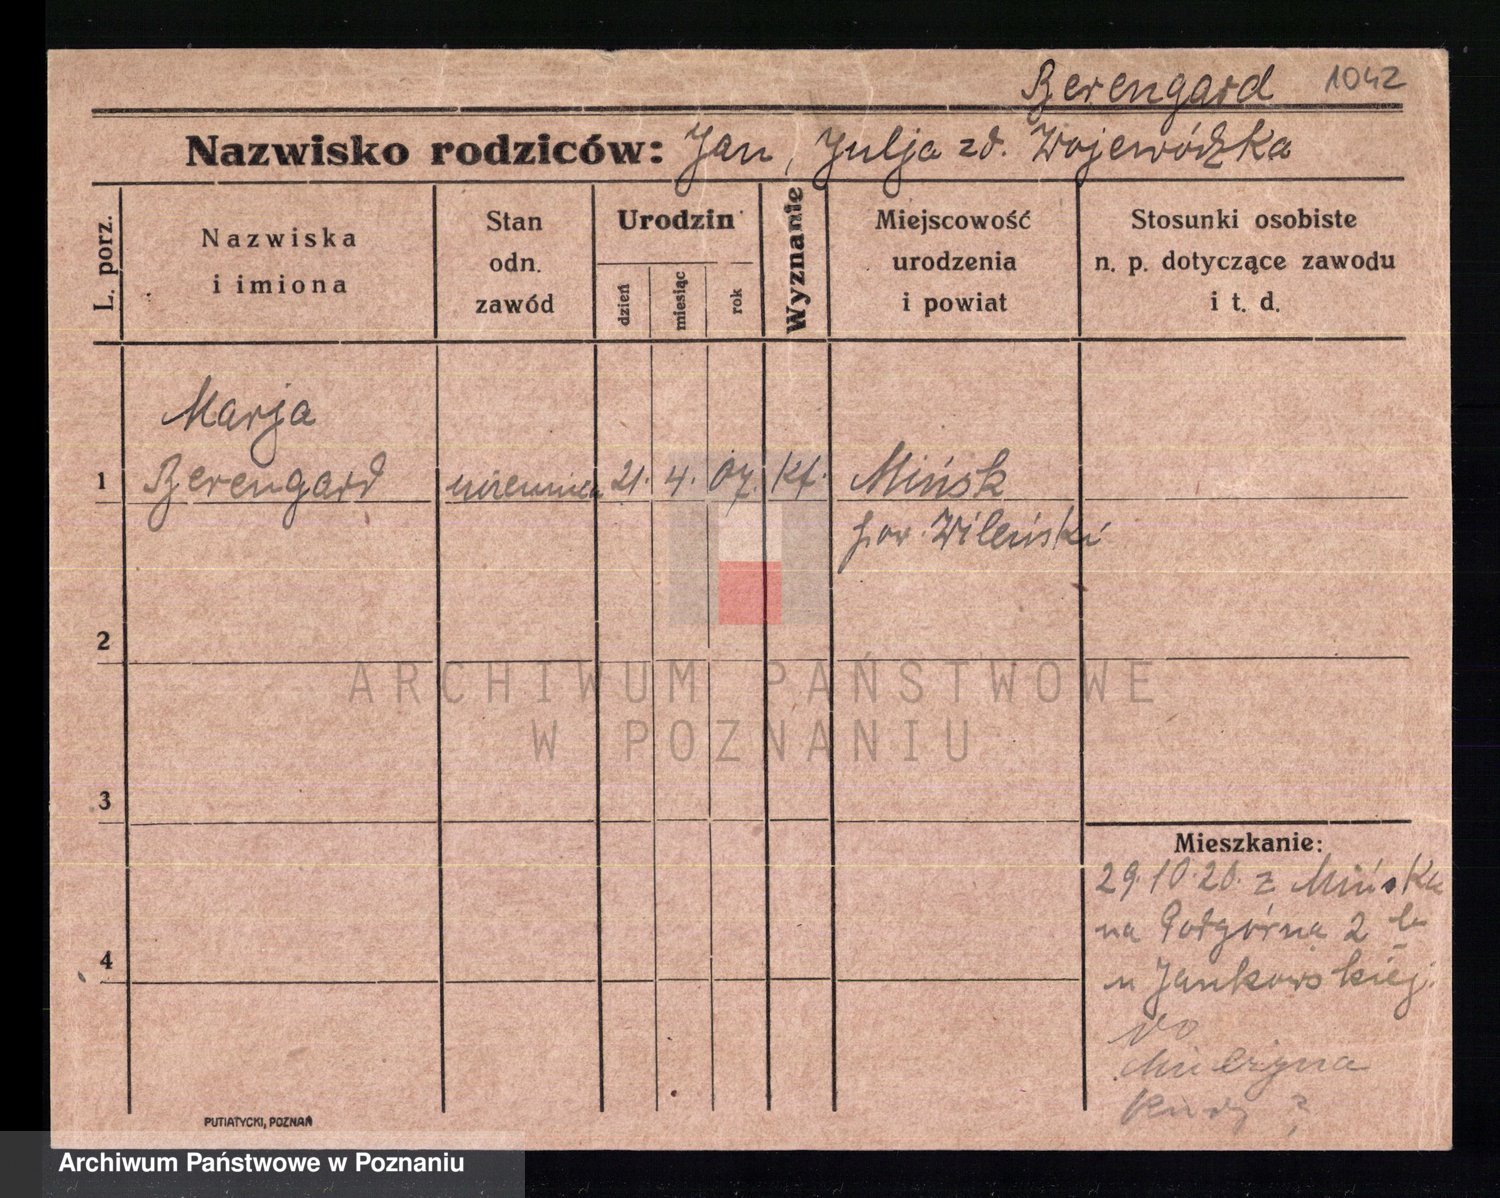 Berengard 1042
Nazwisko rodziców: Jan, Julja zd. Wojewódzka
L. porz.
Nazwiska
i imiona
Stan
odn.
zawód
Urodzin
dzień
miesiąc
rok
Wyznanie
Miejscowość
urodzenia
i powiat
Stosunki osobiste
n. p. dotyczące zawodu
i t. d.
Marja
1 Berengard uczennica 21. 4. 07. kt. Mińsk
pow. Wileński
2
ARCHIWUM PAŃSTWOWE
W POZNANIU
3
Mieszkanie:
29.10.20. z Mińska
na Podgórna 2
4
u Jankowskiej.
do
?
PUTIATYCKI, POZNAŃ
Archiwum Państwowe w Poznaniu